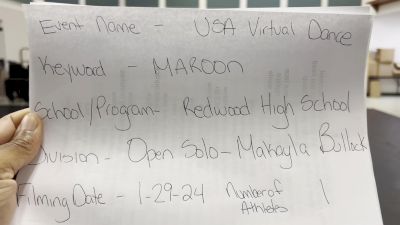 Event Name - USA Virtual Dance
Keyword - MAROON
School/Program- Redwood High School
Division - Open Solo- Makayla Bullock
Filming Date - 1-29-24 Number of Athletes 1